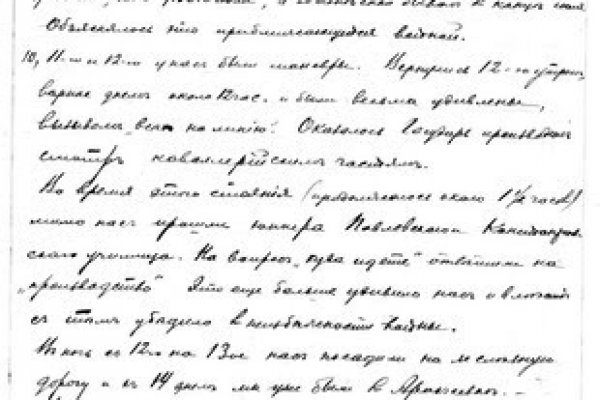 Объяснялось это приближающейся войной.
10, 11-го и 12-го у нас были маневры. Вернулись 12-го утром,
вернее днем около 12 час. и были весьма удивлены,
вызовом „всех на линию". Оказалось Государь производит
смотръ кавалерийским частям.
Во время этого стояния (продолжалось около 1½ часов)
мимо нас прошли юнкера Павловского
училища. На вопрос „куда идете" ответили на
„производство" Это еще больше удивило нас и
с тем убедило в неизбежности войны.
В ночь с 12го на 13ое нас посадили на железную
дорогу и в 14 днем мы уже были в